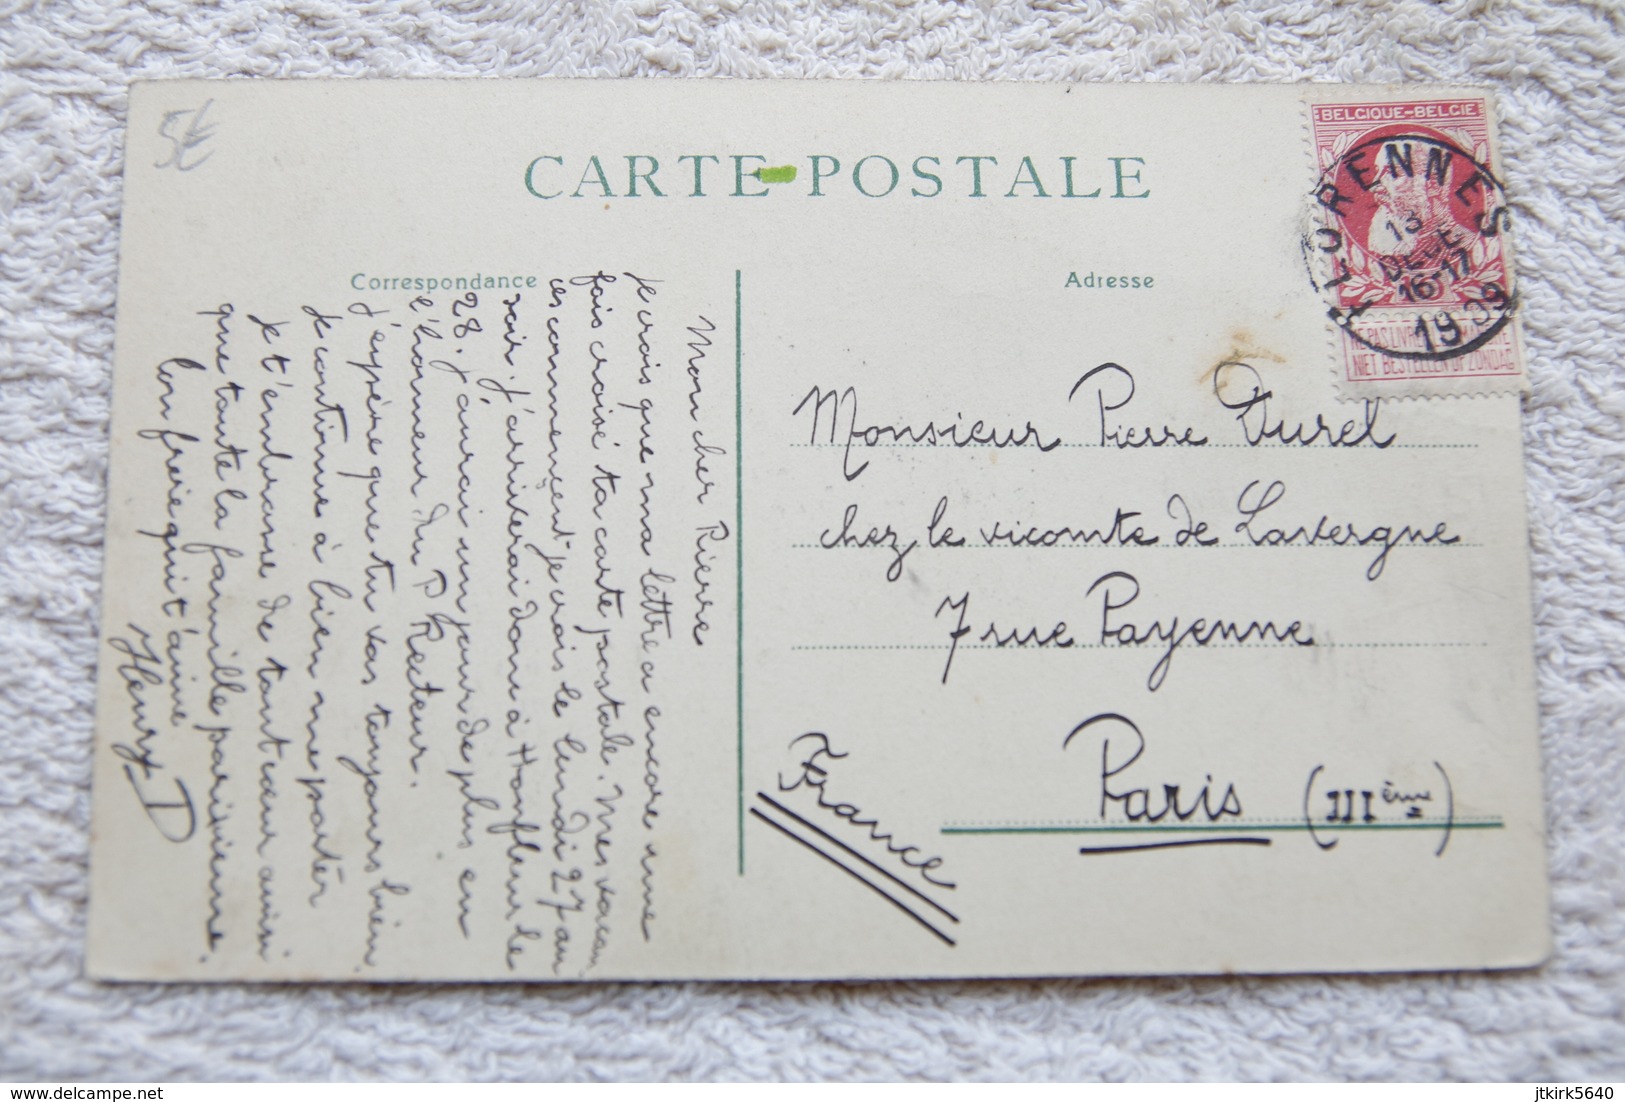 5€
CARTE POSTALE
Correspondance
Adresse
BELGIQUE-BELGIE
FLORENNES
13
DECE
16-17
1909
NE PAS LIVRER LE DIMANCHE
NIET BESTELLEN OP ZONDAG
Mon cher Pierre
Je crois que ma lettre a encore une
fois croisé ta carte postale. Mes vacan
ces commencent je crois le lundi 27 au
soir. J'arriverai donc à Honfleur le
28. J'aurai un jour de plus en
l'honneur du P Recteur.
J'espère que tu vas toujours bien.
Je continue à bien me porter
Je t'embrasse de tout cœur ainsi
que toute la famille parisienne.
Ton frère qui t'aime
Henry D
Monsieur Pierre Durel
chez le vicomte de Lavergne
7 rue Payenne
Paris (IIIème)
France
delcampe.net
jtkirk5640